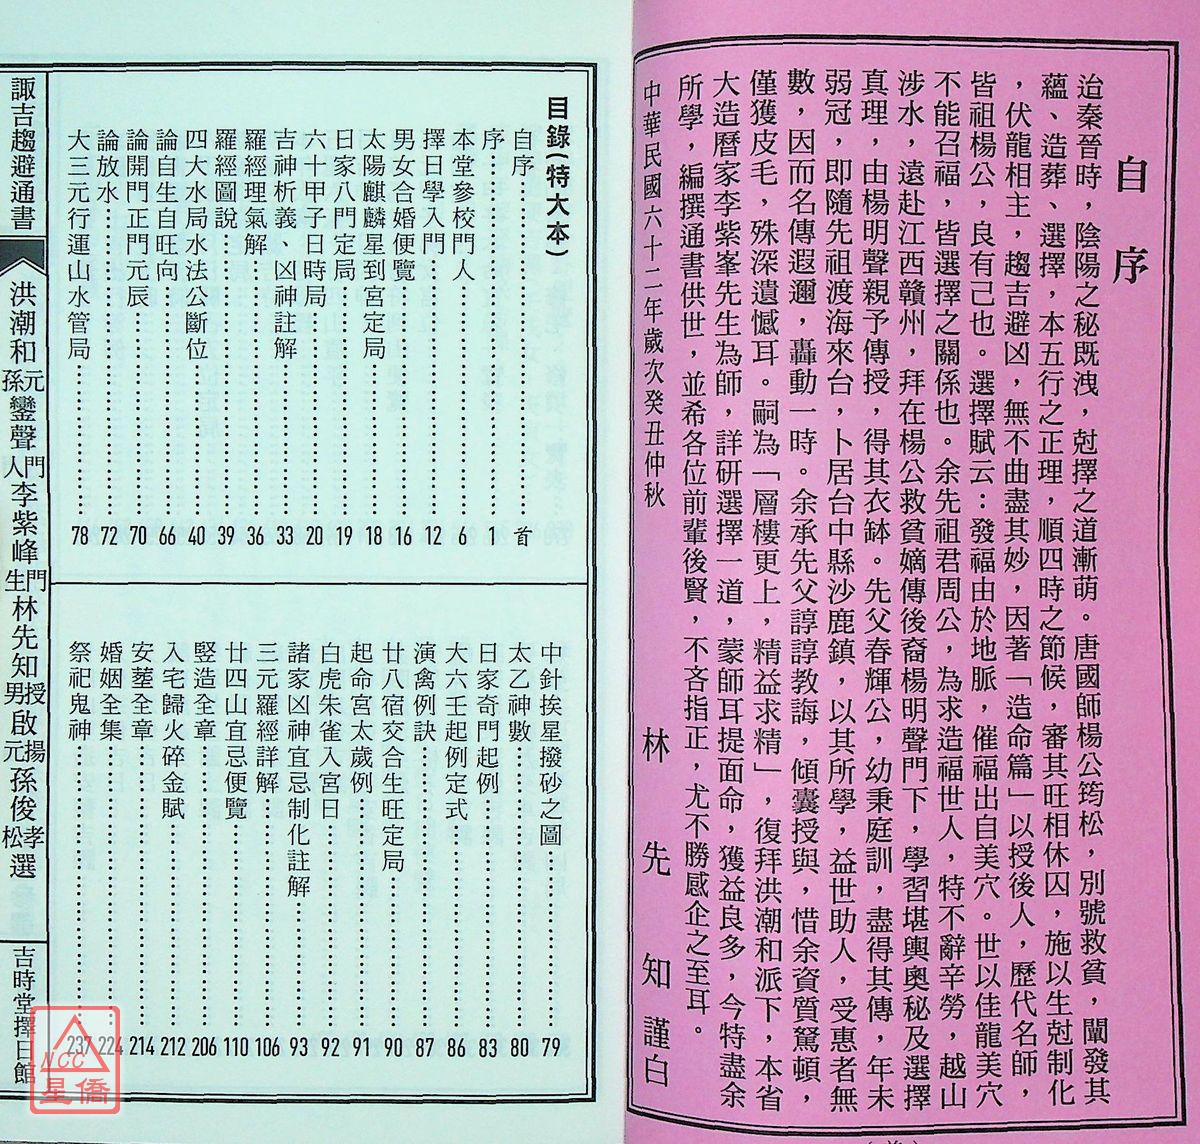 自序
迨秦晉時，陰陽之秘既洩，尅擇之道漸萌。唐國師楊公筠松，別號救貧，闡發其
蘊、造葬、選擇，本五行之正理，順四時之節候，審其旺相休囚，施以生尅制化
，伏龍相主，趨吉避凶，無不曲盡其妙，因著「造命篇」以授後人，歷代名師，
皆祖楊公，良有己也。選擇賦云：發福由於地脈，催福出自美穴。世以佳龍美穴
不能召福，皆選擇之關係也。余先祖君周公，為求造福世人，特不辭辛勞，越山
涉水，遠赴江西贛州，拜在楊公救貧嫡傳後裔楊明聲門下，學習堪輿奧秘及選擇
真理，由楊明聲親予傳授，得其衣缽。先父春輝公，幼秉庭訓，盡得其傳，年未
弱冠，即隨先祖渡海來台，卜居台中縣沙鹿鎮，以其所學，益世助人，受惠者無
數，因而名傳遐邇，轟動一時。余承先父諄諄教誨，傾囊授與，惜余資質駑頓，
僅獲皮毛，殊深遺憾耳。嗣為「層樓更上，精益求精」，復拜洪潮和派下，本省
大造曆家李紫峯先生為師，詳研選擇一道，蒙師耳提面命，獲益良多，今特盡余
所學，編撰通書供世，並希各位前輩後賢，不吝指正，尤不勝感企之至耳。
中華民國六十二年歲次癸丑仲秋
林先知謹白
目錄(特大本)
自序……首
序……1
本堂參校門人……6
擇日學入門……12
男女合婚便覽……16
太陽麒麟星到宮定局……18
日家八門定局……19
六十甲子日時局……20
吉神析義、凶神註解……33
羅經理氣解……36
羅經圖說……39
四大水局水法公斷位……40
論自生自旺向……66
論開門正門元辰……70
論放水……72
大三元行運山水管局……78
中針挨星撥砂之圖……79
太乙神數……80
日家奇門起例……83
大六壬起例定式……86
演禽例訣……87
廿八宿交合生旺定局……90
起命宮太歲例……91
白虎朱雀入宮日……92
諸家凶神宜忌制化註解……93
三元羅經詳解……106
廿四山宜忌便覽……110
竪造全章……206
入宅歸火碎金賦……212
安葬全章……214
婚姻全集……224
祭祀鬼神……237
諏吉趨避通書
洪潮和元孫鑾聲門人李紫峰門生林先知授男啟揚元孫俊孝松選
吉時堂擇日館
NCC
星僑